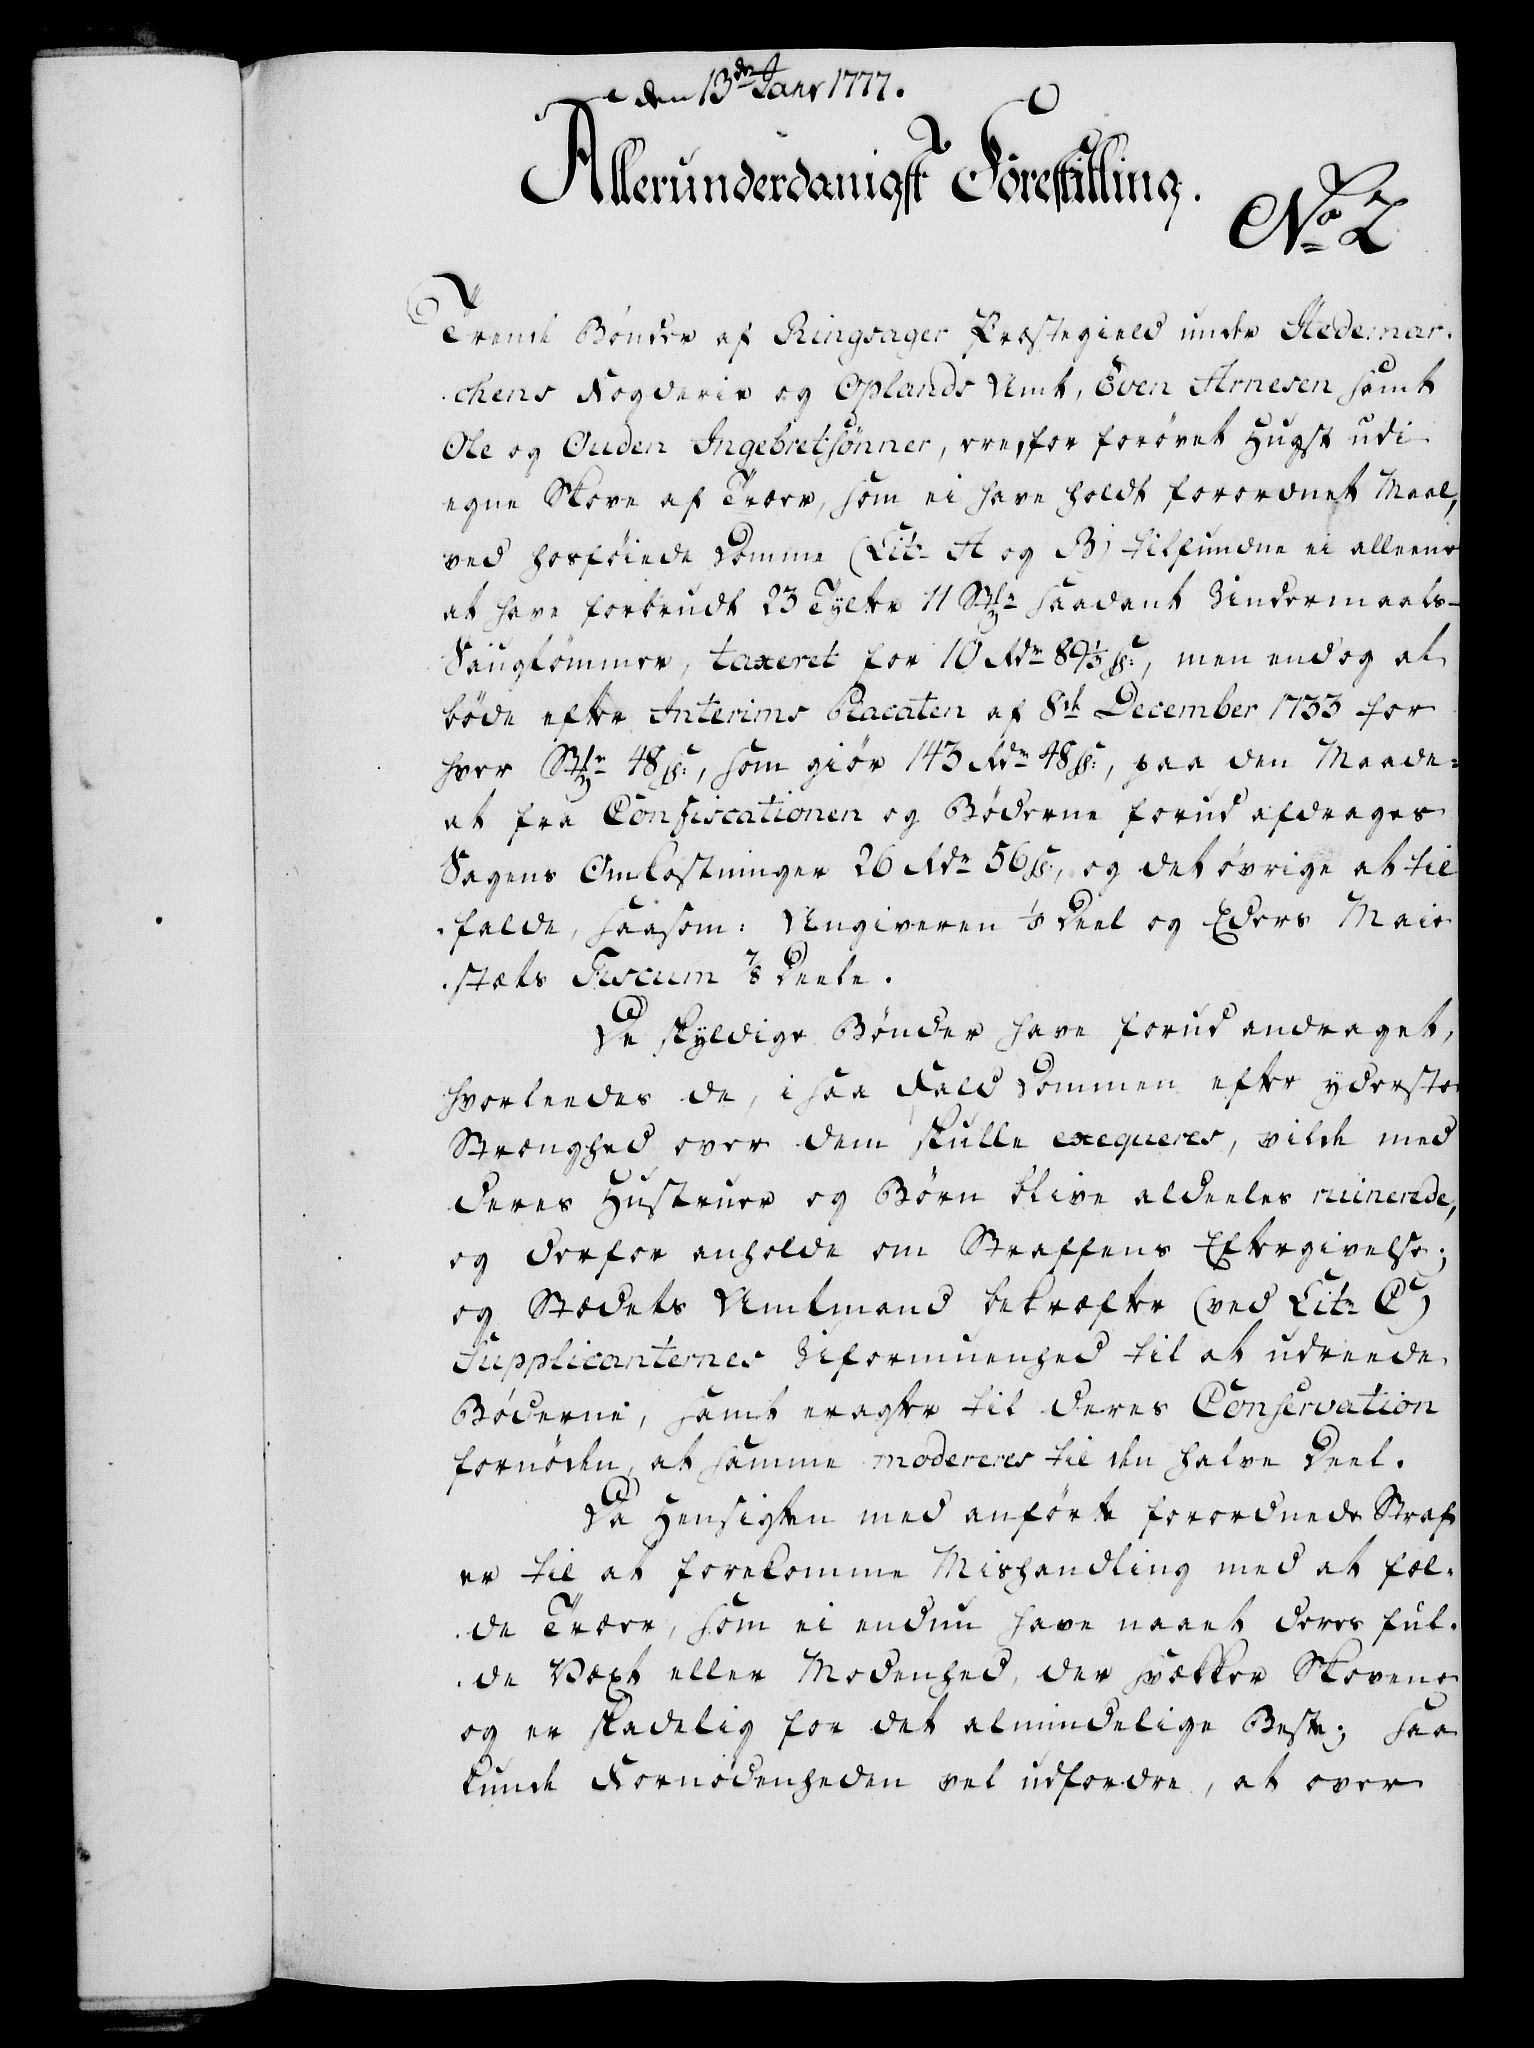 den 13de Janr 1777.
Allerunderdanigst Forestilling.
No 2
Trende Bønder af Ringsager Præstegield under Hedemar-
chens Fogderie og Oplands Amt, Even Arnesen samt
Ole og Ouden Ingebretsönner, ere, for forøvet Hugst udi
egne Skove af Træer, som ei have holdt forordnet Maal,
ved hosføiede Domme (Litr A og B) tilfundne ei alleene
at have forbrudt 23 Tylter 11 Stkr saadant Undermaals-
Saugtømmer, taxeret for 10 Rdr 89⅓ ß:, men endog at
bøde efter Interims Placaten af 8de December 1733 for
hver Stkr 48 ß:, som giør 143 Rdr 48 ß:, paa den Maade:
at fra Confiscationen og Bøderne forud afdrages
Sagens Omkostninger 26 Rdr 56 ß:, og det øvrige at til-
falde, saasom: Angiveren ⅛ Deel og Eders Maje-
stæts Fiscum ⅞ Deele.
De skyldige Bønder have forud andraget,
hvorleedes de, i saa Fald Dommen efter yderste
Strænghed over dem skulle exequeres, vilde med
deres Hustruer og Børn blive aldeeles ruinerede,
og derfor anholde om Straffens Eftergivelse;
og Stædets Amtmand bekræfter (ved Litr C)
Supplicanternes Uformuenhed til at udreede
Bøderne, samt eragter til deres Conservation
fornøden, at samme modereres til den halve Deel.
Da Hensigten med anførte forordnede Straf
er til at forekomme Mishandling med at fæl-
de Træer, som ei endnu have naaet deres ful-
de Væxt eller Modenhed, der svækker Skovene
og er skadelig for det almindelige Beste; saa
kunde Fornødenheden vel udfordre, at over